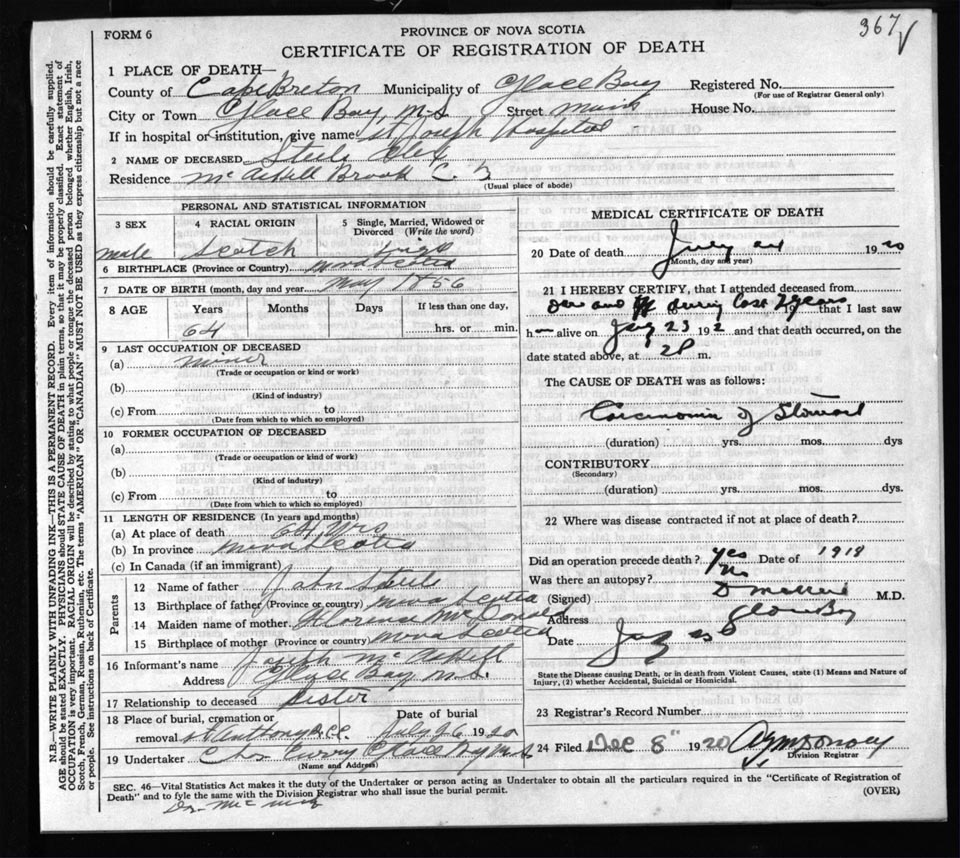 367
FORM 6
PROVINCE OF NOVA SCOTIA
CERTIFICATE OF REGISTRATION OF DEATH
N.B.—WRITE PLAINLY WITH UNFADING INK—THIS IS A PERMANENT RECORD. Every item of information should be carefully supplied.
AGE should be stated EXACTLY. PHYSICIANS should STATE CAUSE OF DEATH in plain terms, so that it may be properly classified. Exact statement of
OCCUPATION is very important. RACIAL ORIGIN will be described by stating to what people or tongue the deceased person belonged whether English, Irish,
Scotch, French, German, Russian, Ruthenian, etc. The terms "AMERICAN" OR "CANADIAN" MUST NOT BE USED as they express citizenship but not a race
or people. See instructions on back of Certificate.
1 PLACE OF DEATH—
County of Cape Breton Municipality of Glace Bay Registered No.
(For use of Registrar General only)
City or Town Glace Bay, N.S Street Main House No.
If in hospital or institution, give name St Joseph Hospital
2 NAME OF DECEASED Steele
Residence Brook C. B
(Usual place of abode)
PERSONAL AND STATISTICAL INFORMATION
3 SEX male
4 RACIAL ORIGIN Scotch
5 Single, Married, Widowed or Divorced (Write the word)
6 BIRTHPLACE (Province or Country) Nova Scotia
7 DATE OF BIRTH (month, day and year) May 1856
8 AGE Years Months Days If less than one day,
64 hrs. or min.
9 LAST OCCUPATION OF DECEASED
(a) miner
(Trade or occupation or kind or work)
(b)
(Kind of industry)
(c) From to
(Date from which to which so employed)
10 FORMER OCCUPATION OF DECEASED
(a)
(Trade or occupation or kind of work)
(b)
(Kind of industry)
(c) From to
(Date from which to which so employed)
11 LENGTH OF RESIDENCE (In years and months)
(a) At place of death 64 yrs
(b) In province Nova Scotia
(c) In Canada (if an immigrant)
Parents
12 Name of father John Steele
13 Birthplace of father (Province or country) Nova Scotia
14 Maiden name of mother
15 Birthplace of mother (Province or country) Nova Scotia
16 Informant's name Joseph
Address Glace Bay N.S.
17 Relationship to deceased Sister
18 Place of burial, cremation or removal St Anthony RCC Date of burial July 26 1920
19 Undertaker Chs Curry Glace Bay N.S
(Name and Address)
MEDICAL CERTIFICATE OF DEATH
20 Date of death July 1920
(Month, day and year)
21 I HEREBY CERTIFY, that I attended deceased from
during last 2 years that I last saw
h alive on 23 192 and that death occurred, on the
date stated above, at m.
The CAUSE OF DEATH was as follows:
Carcinoma of Stomach
(duration) yrs. mos. dys
CONTRIBUTORY
(Secondary)
(duration) yrs. mos. dys.
22 Where was disease contracted if not at place of death?
Did an operation precede death? Yes Date of 1918
Was there an autopsy? No
(Signed) M.D.
Address Glace Bay
Date
State the Disease causing Death, or in death from Violent Causes, state (1) Means and Nature of
Injury, (2) whether Accidental, Suicidal or Homicidal.
23 Registrar's Record Number
24 Filed Dec 8" 1920
Division Registrar
SEC. 46—Vital Statistics Act makes it the duty of the Undertaker or person acting as Undertaker to obtain all the particulars required in the "Certificate of Registration of
Death" and to fyle the same with the Division Registrar who shall issue the burial permit.
(OVER)